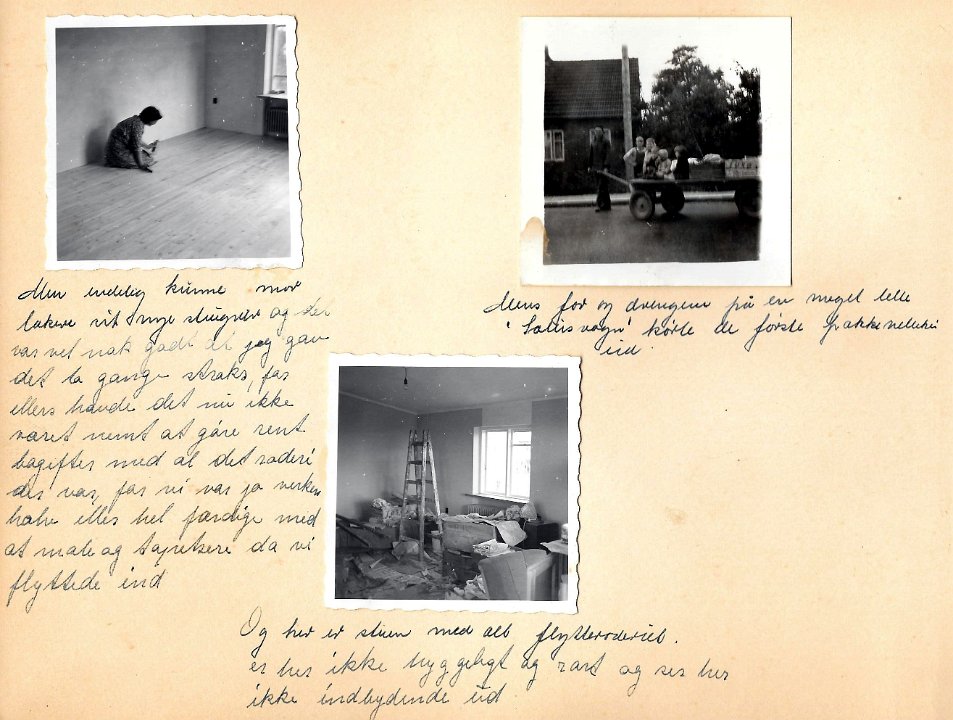 Men endelig kunne mor
lakere sit nye stuegulv og der
var vel nok godt at jeg gav
det to gange straks, for
ellers havde det nu ikke
været nemt at gøre rent
bagefter med al det roderi
der var, for vi var jo verken
halv eller hel færdige med
at male og tapetsere da vi
flyttede ind
Mens far og drengene på en meget lille
"        vogn" kørte de første
ud
Og her er stuen med alt flytteroderiet.
er her ikke hyggeligt og rart og ser her
ikke indbydende ud